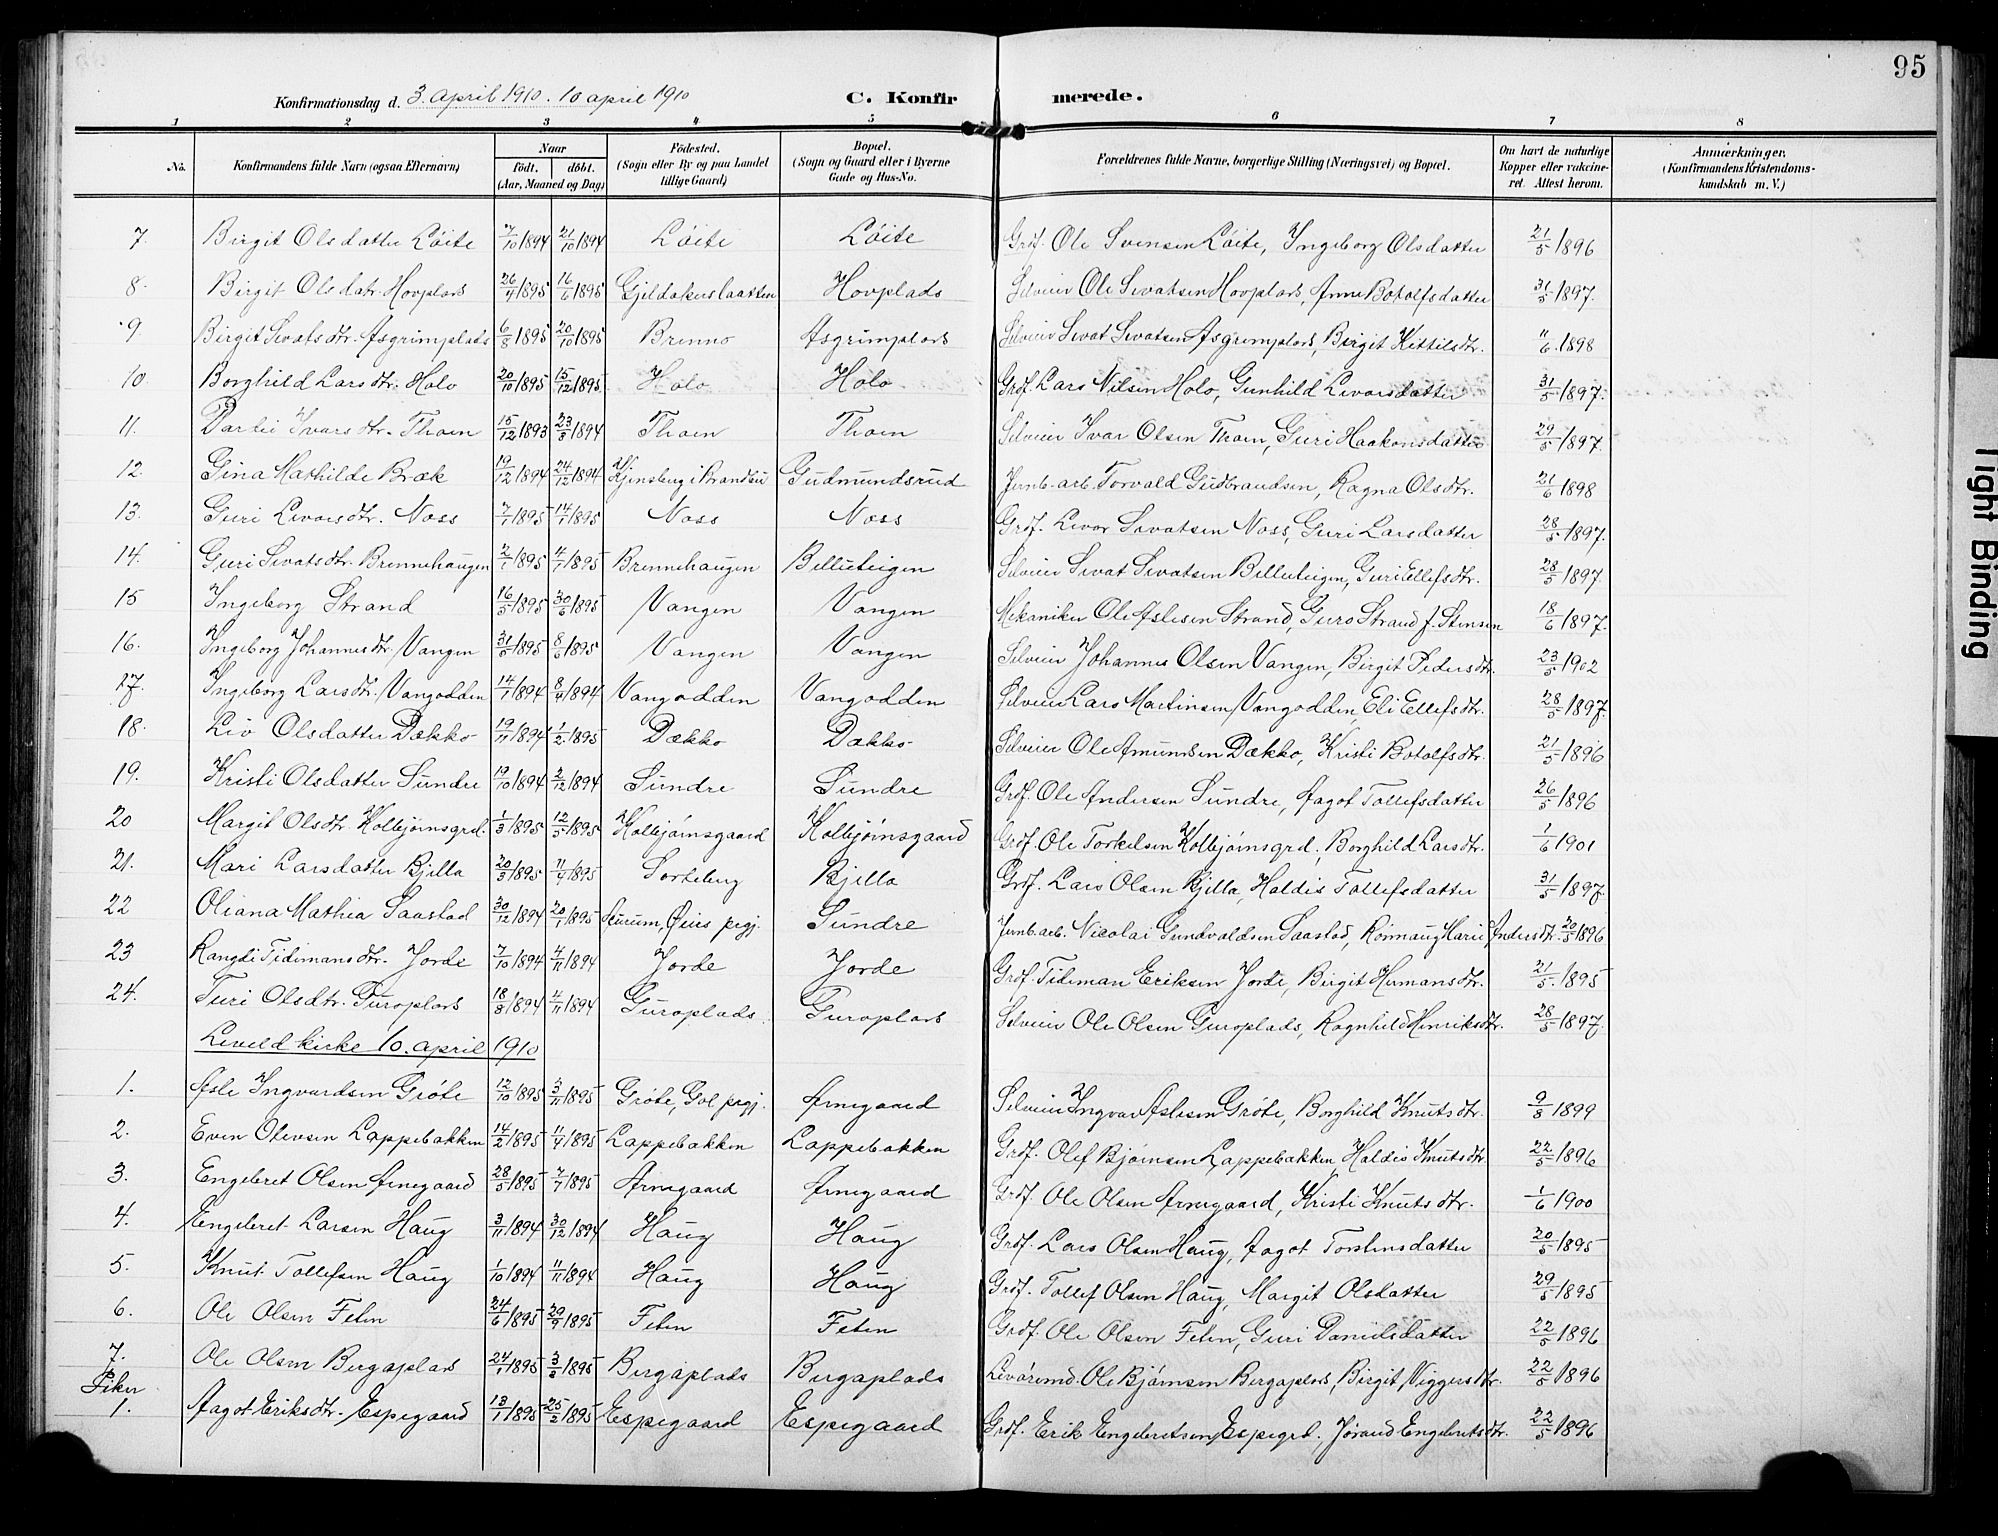 95
Konfirmationsdag d. 3 april 1910. 10 april 1910 C. Konfirmerede.
1 2 3 4 5 6 7 8
No. Konfirmandens fulde Navn (ogsaa Efternavn) Naar født. døbt. (Aar, Maaned og Dag) Fødested. (Sogn eller By og paa Landet tillige Gaard) Bopæl. (Sogn og Gaard eller i Byerne Gade og Hus-No. Forældrenes fulde Navne, borgerlige Stilling (Næringsvei) og Bopæl. Om havt de naturlige Kopper eller vakcineret. Attest herom. Anmærkninger. (Konfirmandens Kristendomskundskab m. V.)
7. Birgit Olsdatter Løite 7/10 1894 21/10 1894 Løite Løite Grdf. Ole Svensen Løite, Ingeborg Olsdatter 21/5 1896
8. Birgit Olsdatr. Hovplads 26/4 1895 16/6 1895 Gjeldakerslaatten Hovplads Selveier Ole Sivatsen Hovplads, Anne Botolfsdatter 31/5 1897.
9 Birgit Sivatsdtr. Asgrimplads 6/8 1895 20/10 1895 Brenno Asgrimplads Selveier Sivat Sivatsen Asgrimplads, Birgit Kittilsdtr. 11/6. 1898
10. Borghild Larsdtr. Holo 20/10 1895 15/12 1895 Holo Holo Grdf. Lars Nilsen Holo, Gunhild Livarsdatter 31/5 1897.
11. Barbei Ivarsdtr. Thoen 15/12 1893 23/3 1894 Thoen Thoen Selveier Ivar Olsen Thoen, Guri Haakonsdatter 29/5 1897.
12. Gina Mathilde Bræk 19/12 1894 24/12 1894 i Brandbu Gudmundsrud Jernb.arb. Torvald Gudbrandsen, Ragna Olsdtr. 21/6 1898
13. Guri Livarsdtr. Noss 7/1 1895 14/1 1895 Noss Noss Grdf. Livar Sivatsen Noss, Guri Larsdatter 28/5 1897.
14. Guri Sivatsdtr. Brennehaugen 2/1 1895 4/1 1895 Brennehaugen Belleteigen Selveier Sivat Sivatsen Belleteigen, Guri Ellefsdtr. 28/5 1897.
15 Ingeborg Strand 16/5 1895 30/6 1895 Vangen Vangen Mekaniker Ole Aslesen Strand, Guro Strand f. Stensen 18/6 1897.
16. Ingeborg Johannesdtr. Vangen 31/5 1895 8/6 1895 Vangen Vangen Selveier Johannes Olsen Vangen, Birgit Pedersdtr. 23/5 1902
17. Ingeborg Larsdtr. Vangodden 14/1 1894 8/4 1894 Vangodden Vangodden Selveier Lars Martinsen Vangodden, Eli Ellefsdtr. 28/5 1897.
18. Liv Olsdatter Dækko 19/11 1894 1/2 1895 Dækko Dækko Selveier Ole Amundsen Dækko, Kristi Botolfsdtr. 21/5 1896
19. Kristi Olsdatter Sundre 19/10 1894 2/12 1894 Sundre Sundre Grdf. Ole Andersen Sundre, Aagot Tollefsdatter 26/5 1896
20 Margit Olsdtr. Kolbjørnsgrd. 1/3 1895 12/5 1895 Kolbjørnsgaard Kolbjørnsgaard Grdf. Ole Torkelsen Kolbjørnsgrd., Borghild Larsdtr. 1/6 1901
21. Mari Larsdatter Bjella 20/3 1895 11/4 1895 Sorteberg Bjella Grdf. Lars Olsen Bjella, Haldis Tollefsdatter 31/5 1897.
22 Oliana Mathea Saastad 30/12 1894 20/1 1895 prgj. Sundre Jernb.arb. Nicolai Gundvaldsen Saastad, Rønnaug Marie Andersdtr. 20/5 1896
23 Rangdi Tidimansdtr. Jorde 7/10 1894 4/11 1894 Jorde Jorde Grdf. Tideman Eriksen Jorde, Birgit Hermansdtr. 21/5. 1895
24. Turi Olsdtr. Guroplads 18/8 1894 4/11 1894 Guroplads. Guroplads Selveier Ole Olsen Guroplads, Ragnhild Henriksdtr. 28/5 1897.
Leveld kirke 10. april 1910
1. Asle Ingvardsen Grøte 12/10 1895 3/11 1895 Grøte, Gol prgj. Arnegaard Selveier Ingvar Aslesen Grøte, Borghild Knutsdtr. 9/8 1899
2. Even Olevsen Lappebakken 14/2 1895 11/4 1895 Lappebakken Lappebakken Grdf. Olef Bjørnsen Lappebakken, Haldis Knutsdtr. 22/5 1896
3. Engebret Olsen Arnegaard 28/5 1895 7/7 1895 Arnegaard Arnegaard Grdf. Ole Olsen Arnegaard, Kristi Knutsdtr. 1/6 1900
4. Engebret Larsen Haug 3/11 1894 30/12 1894 Haug Haug Grdf. Lars Olsen Haug, Aagot Torstensdatter 20/5 1895
5. Knut Tollefsen Haug 1/10 1894 11/11 1894 Haug Haug Grdf. Tollef Olsen Haug, Margit Olsdatter 29/5 1895
6. Ole Olsen Feten 24/6 1895 29/9 1895 Feten Feten Grdf. Ole Olsen Feten, Guri Danielsdatter 22/5 1896
7. Ole Olsen Bergaplads 24/1 1895 3/3 1895 Bergaplads Bergaplads Livøremd. Ole Bjørnsen Bergaplads, Birgit Viggersdtr. 22/5 1896
Piker
1. Aagot Eriksdtr. Espegaard 13/1 1895 25/2 1895 Espegaard Espegaard Grdf. Erik Engebretsen Espegrd. Jørand Engebretsdtr. 22/5 1896
Tight Binding